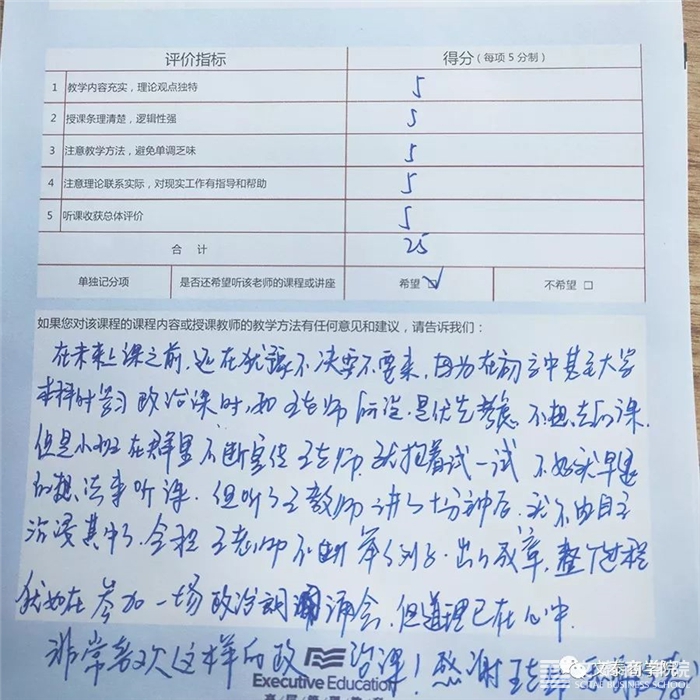 评价指标 得分（每项5分制）
1 教学内容充实，理论观点独特 5
2 授课条理清楚，逻辑性强 5
3 注意教学方法，避免单调乏味 5
4 注意理论联系实际，对现实工作有指导和帮助 5
5 听课收获总体评价 5
合 计 25
单独记分项 是否还希望听该老师的课程或讲座 希望 ☑ 不希望 □
如果您对该课程的课程内容或授课教师的教学方法有任何意见和建议，请告诉我们：
在未来上课之前，还在犹豫不决要不要来，因为在初高中甚至大学
本科时学习政治课时，如王老师所说，是优先考虑不想去的课．
但是小班在群里不断宣传王老师，我抱着试一试
的想法来听课．但听了王教师讲了十分钟后，我不由自主
沉浸其中了．全程王老师不断举例子．出口成章，整个过程
犹如在参加一场政治朗诵会，但道理已在心中．
非常喜欢这样的政治课！感谢王老师
Executive Education
文泰商学院
SCTAE BUSINESS SCHOOL